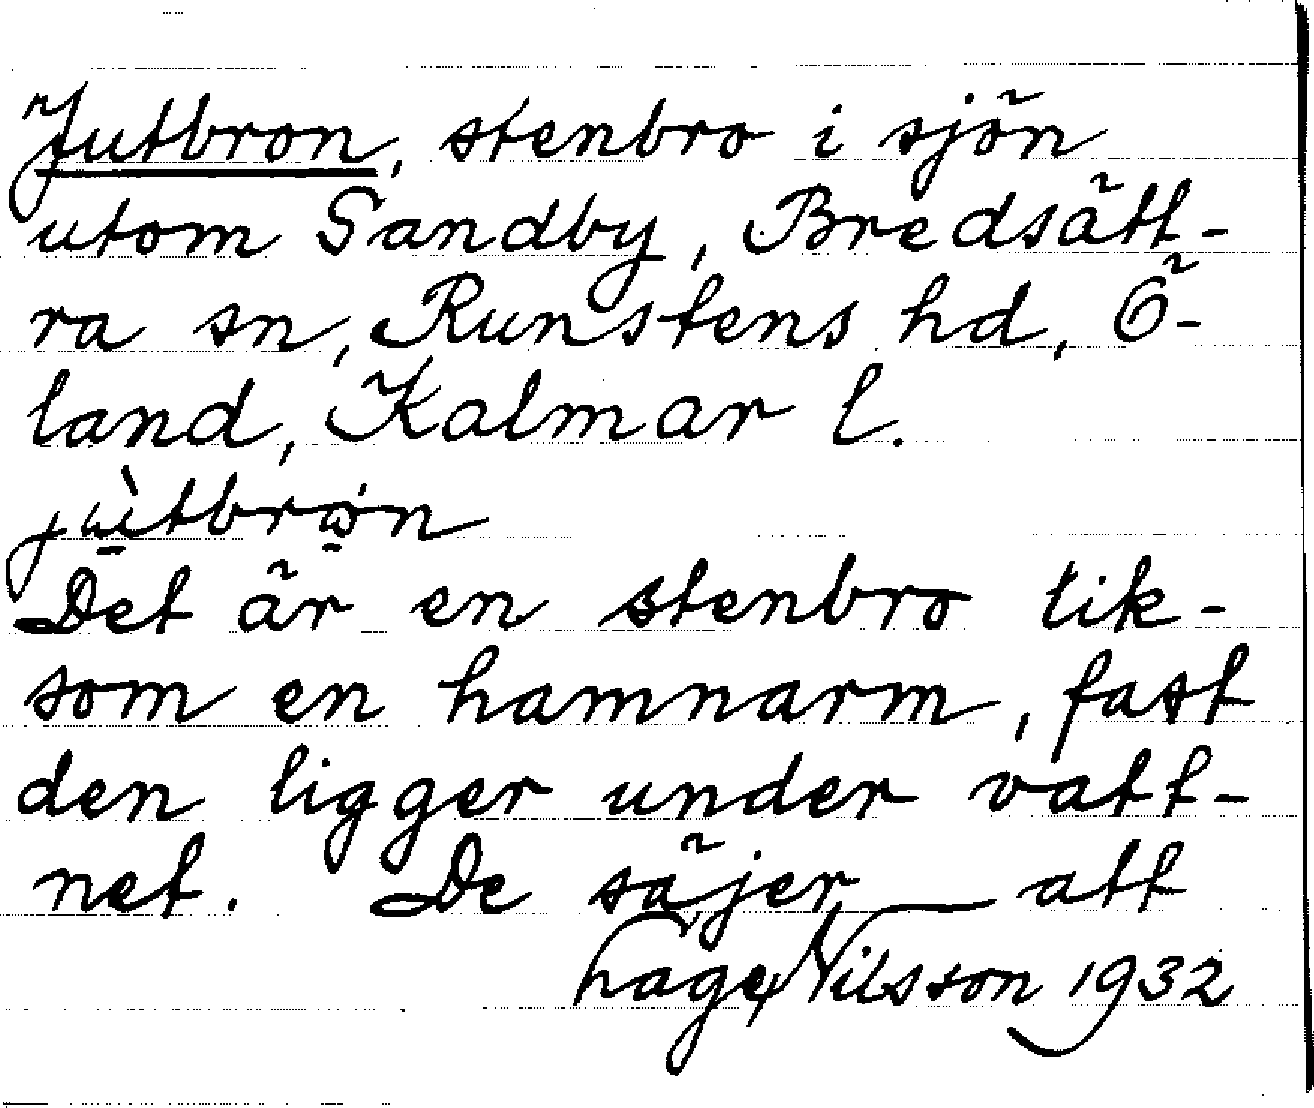 Jutbron, stenbro i sjön
utom Sandby, Bredsätt-
ra sn, Runstens hd, Ö-
land, Kalmar l.
jùtbrọn
Det är en stenbro lik-
som en hamnarm, fast
den ligger under vatt-
net. De säjer att
Nilsson 1932